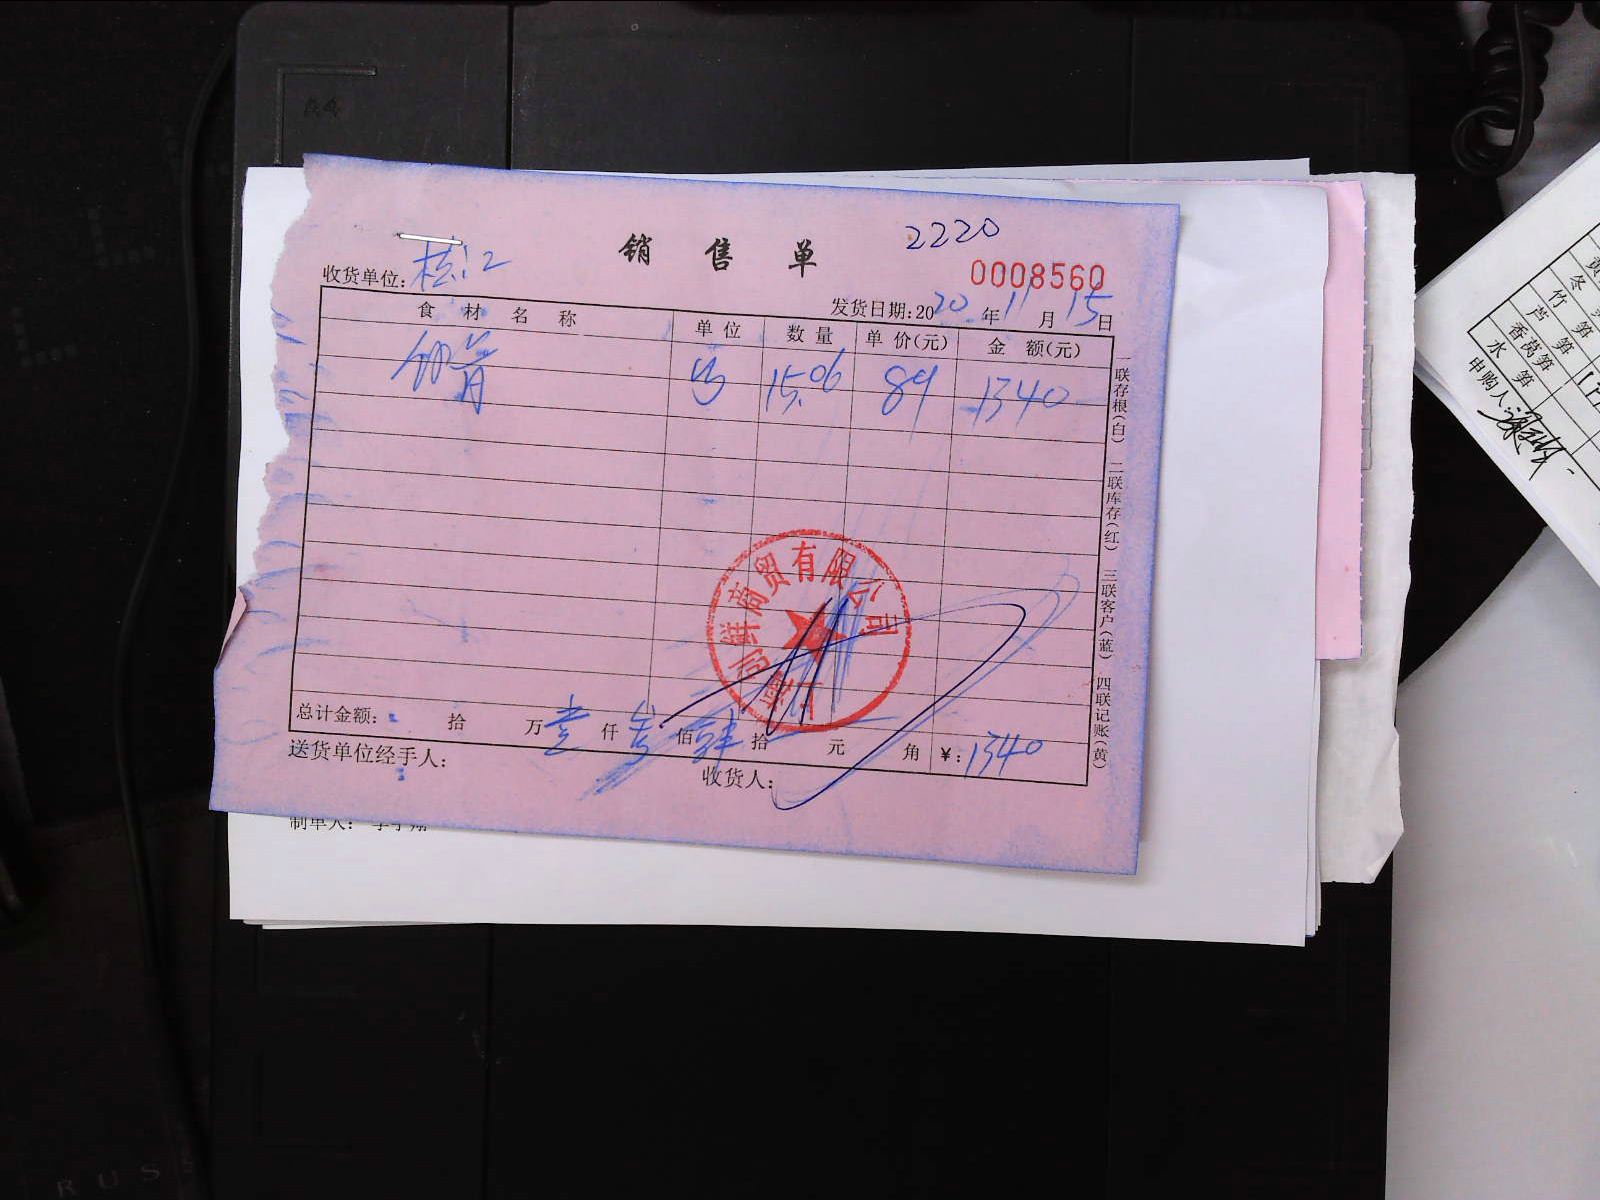 A4
销 售 单
2220
0008560
收货单位:
发货日期:2020年11月15日
食 材 名 称 单 位 数 量 单 价(元) 金 额(元)
15.06 89 1340
一联存根(白) 二联库存(红) 三联客户(蓝) 四联记账(黄)
商贸有限公司
总计金额: 拾 万 壹 仟 佰 拾 元 角 ¥:1340
送货单位经手人: 收货人:
制单人:
冬
竹 笋
芦 笋
香莴笋
水 笋
申购人:
RUS